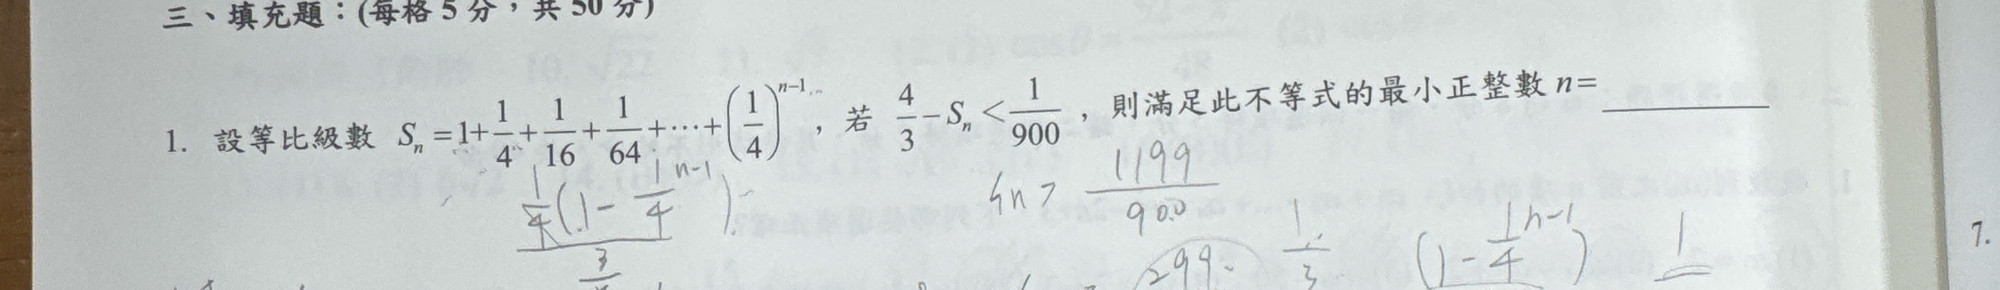 三、填充題：(每格 5 分，共 50 分)
1. 設等比級數 Sₙ = 1 + 1/4 + 1/16 + 1/64 + ⋯ + (1/4)ⁿ⁻¹，若 4/3 − Sₙ < 1/900，則滿足此不等式的最小正整數 n = ________
1/4 (1 − 1/4ⁿ⁻¹) / 3
Sn > 1199/900
299 1/3 (1 − 1/4ⁿ⁻¹) 1
7.